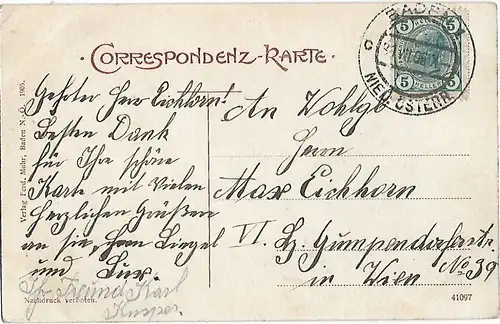 CORRESPONDENZ-KARTE.
BADEN
5 HELLER 5
NIED. OSTERR.
Geehrter Herr Eichhorn!
Besten Dank
für Ihre schöne
Karte mit Vielen
herzlichen Grüßen
an sie, Herrn
und
Ihr Freund Karl
An Wohlgb
Herrn
Max Eichhorn
VI. Gumpendorferstr.
No 39
in Wien
Verlag Ferd. Mohr, Baden N.-Ö. 1905.
Nachdruck verboten.
41097